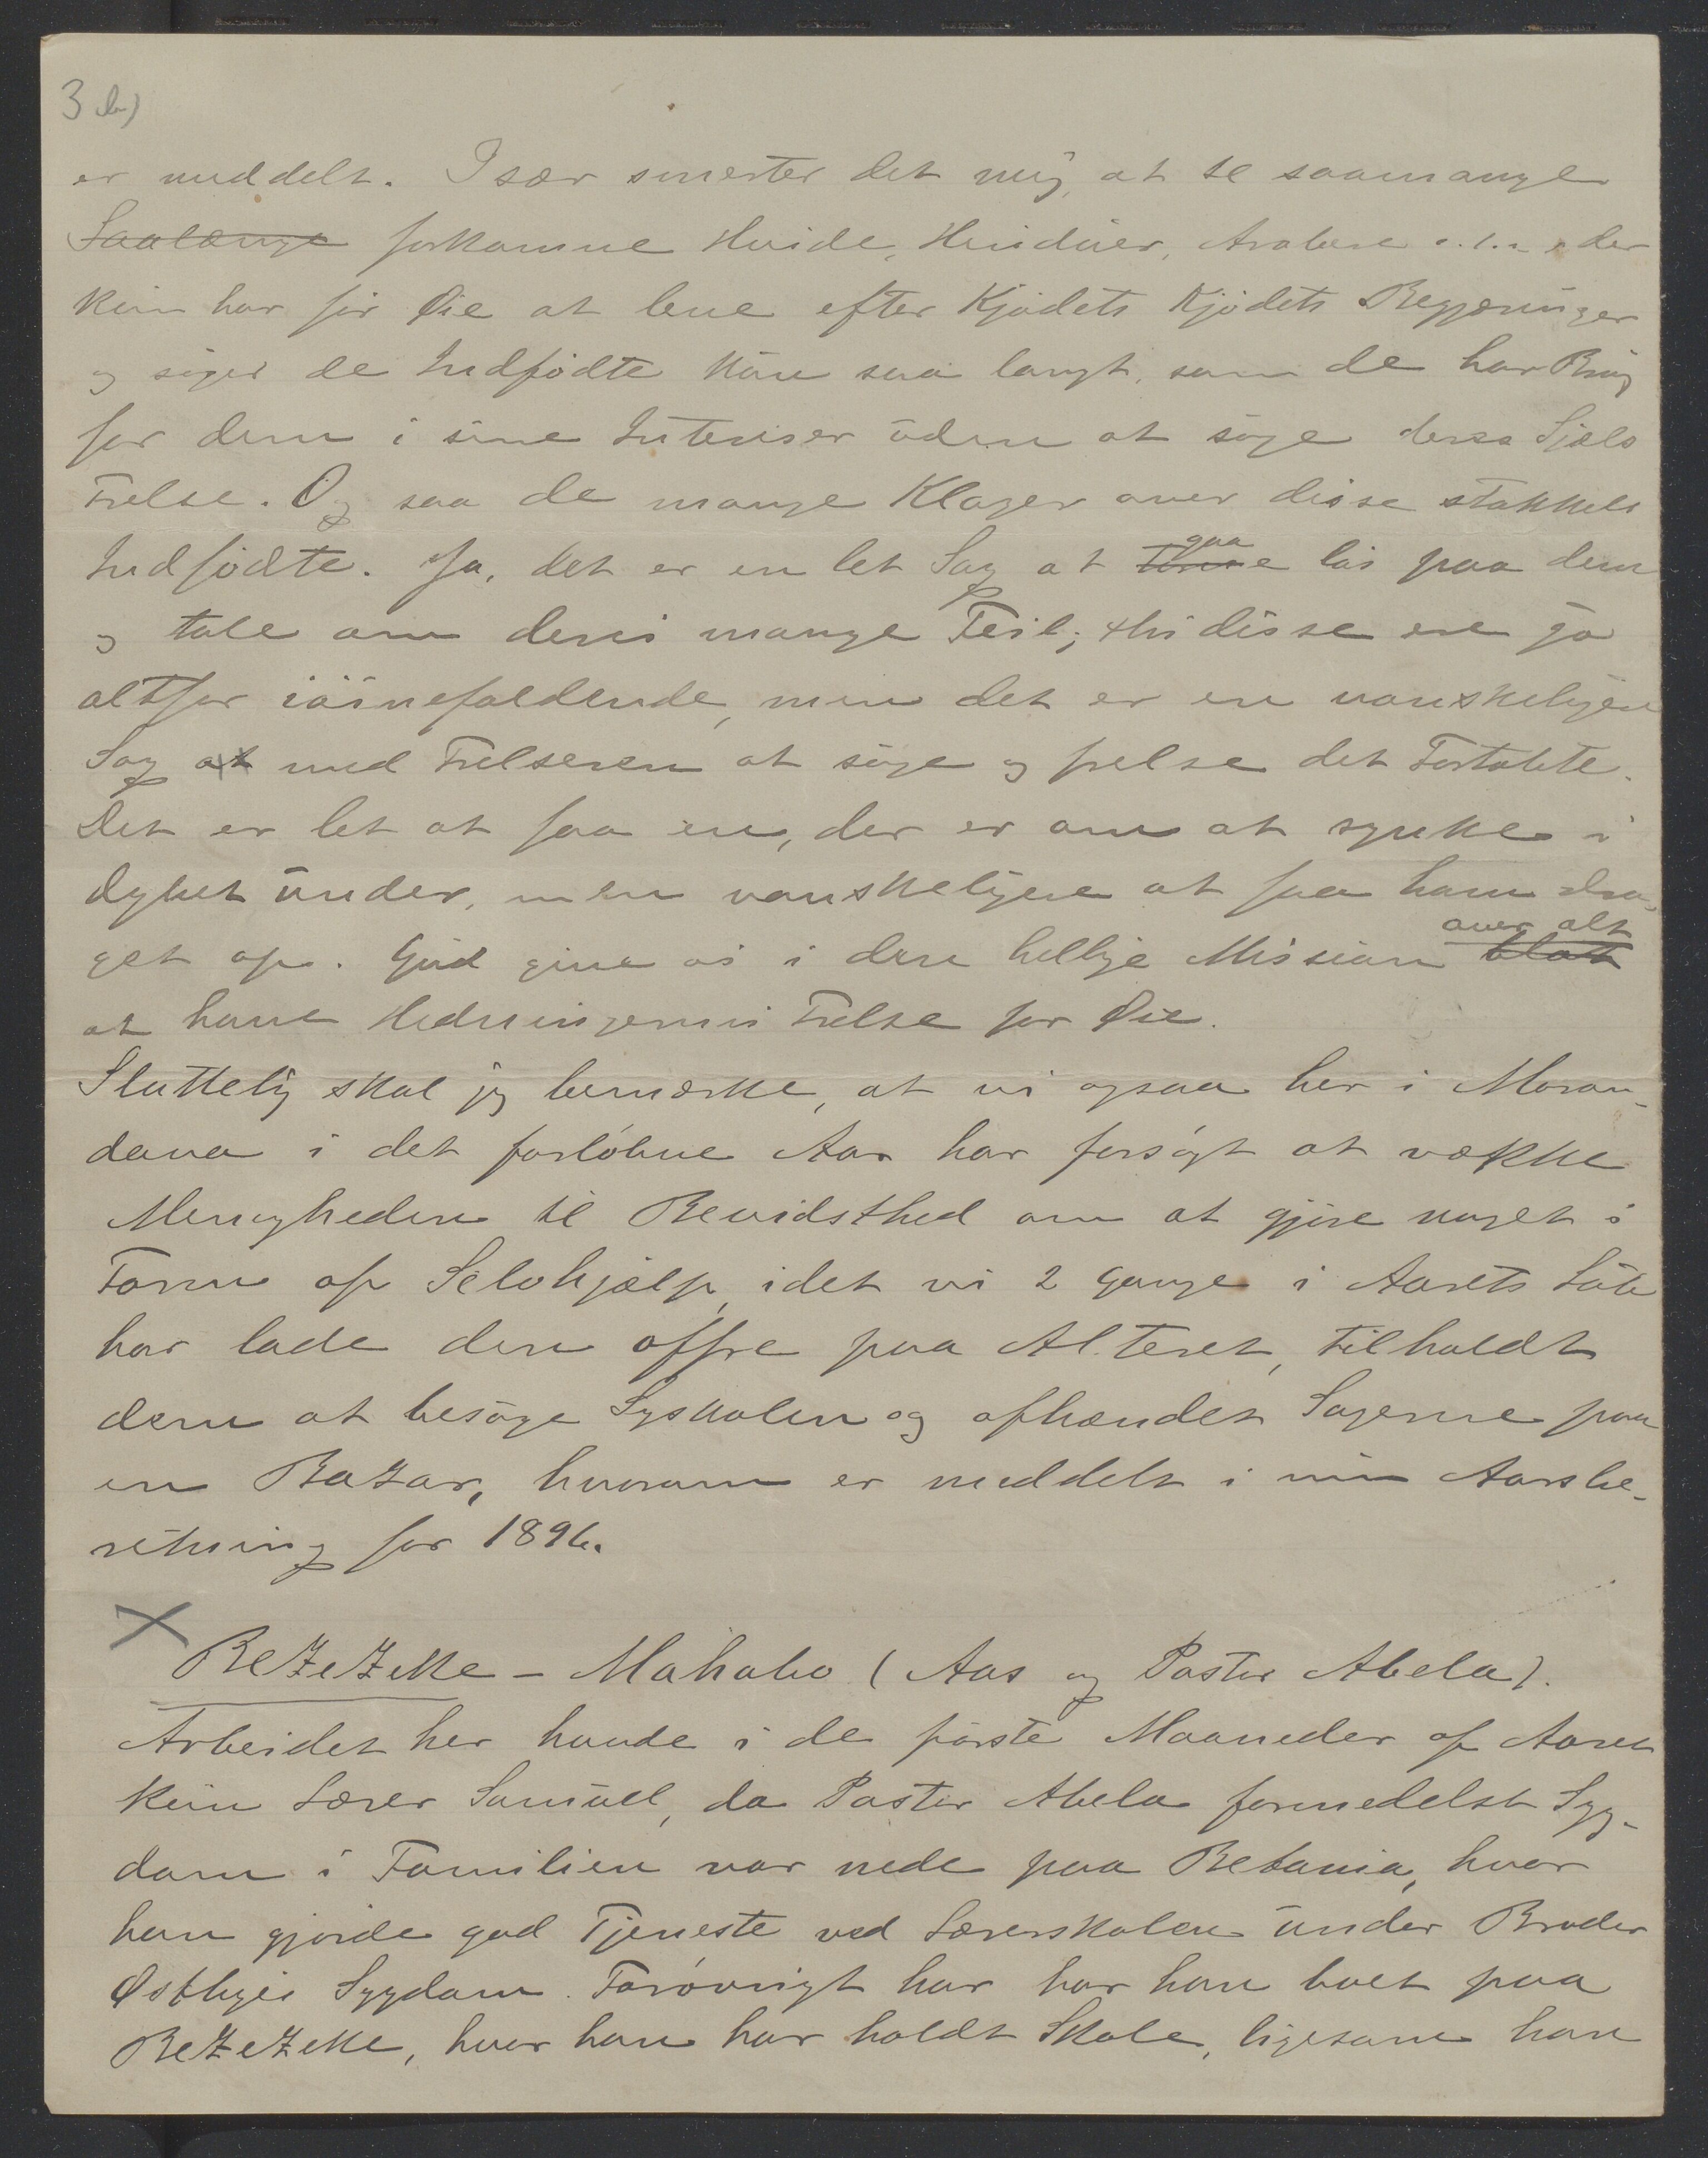 3 b)
er meddelt. Især smerter det mig, at se saamange
Saalænge forkomne Hvide, Hinduer, Arabere o.l. der
kun har for Øie at leve efter Kjödets Kjödets Begjæringer
og söger de Indfödte kun saa langt, som de har Brug
for dem i sine Interesser uden at söge deres Sjæls
Frelse. Og saa de mange Klager over disse stakkels
Indfödte. Ja, det er en let Sag at gaa lös paa dem
og tale om deres mange Feil; thi disse ere jo
altfor iöinefaldende, men det er en vanskeligere
Sag at med Frelseren at söge og frelse det Fortabte.
Det er let at faa en, der er om at synke i
Dybet under, men vanskeligere at faa ham dra-
get op. Gud give os i den hellige Mission over alt blot
at have Hedningernes Frelse for Øie.
Sluttelig skal jeg bemærke, at vi ogsaa her i Moron-
dava i det forløbne Aar har forsøgt at vække
Menigheden til Bevidsthed om at gjøre noget i
Form af Selvhjælp, idet vi 2 Gange i Aarets Löb
har lade den offre paa Alteret, tilholdt
dem at besöge Syskolen og afhændet Sagerne paa
en Bazar, hvorom er meddelt i min Aarsbe-
retning for 1896.
X
Bezezeke - Mahabo (Aas og Pastor Abela).
Arbeidet her havde i de första Maaneder af Aaret
kun Lærer Samuel, da Pastor Abela formedelst Syg-
dom i Familien var nede paa Betania, hvor
han gjorde god Tjeneste ved Lærerskolen under Broder
Østbyes Sygdom. Forøvrigt har har han boet paa
Bezezeke, hvor han har holdt Skole, ligesom han